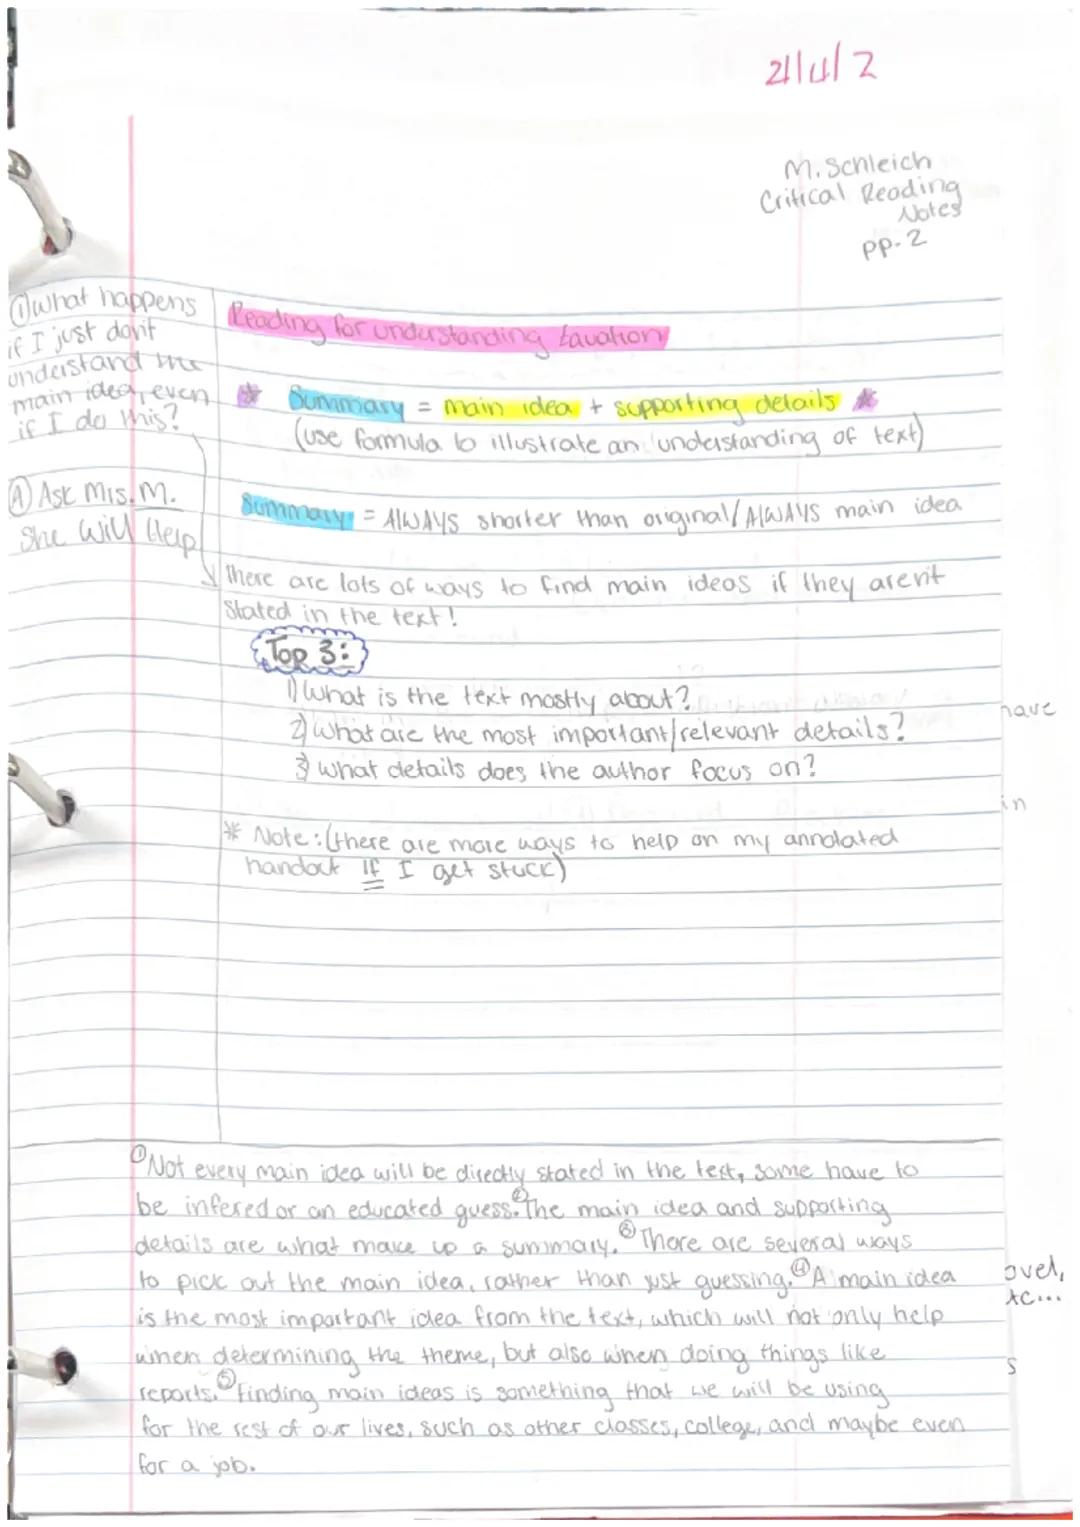 M. Schleich
Critical Reading
Notes
pp. 2
① What happens
if I just don't
understand the
main idea, even
if I do this?
Ⓐ Ask Mrs. M.
She Will Help
Reading for understanding Equation
* Summary = main idea + supporting details *
(use formula to illustrate an understanding of text)
Summary = AlWAYS shorter than original/AlWAYS main idea
There are lots of ways to find main ideas if they aren't
Stated in the text!
Top 3:
1) What is the text mostly about?
2) What are the most important/relevant details?
3) What details does the author focus on?
* Note: (there are more ways to help on my annotated
handout If I get stuck)
have
in
① Not every main idea will be directly stated in the test, some have to
be infered or an educated guess. ② The main idea and supporting
details are what make up a summary. ③ There are several ways
to pick out the main idea, rather than just guessing. ④ A main idea
is the most important idea from the text, which will not only help
when determining the theme, but also when doing things like
reports. ⑤ Finding main ideas is something that we will be using
for the rest of our lives, such as other classes, college, and maybe even
for a job.
ovel,
s